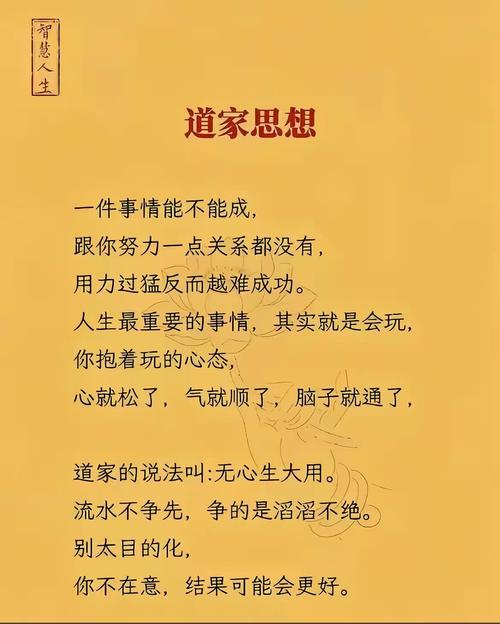 智慧人生
道家思想
一件事情能不能成，
跟你努力一点关系都没有，
用力过猛反而越难成功。
人生最重要的事情，其实就是会玩，
你抱着玩的心态，
心就松了，气就顺了，脑子就通了，
道家的说法叫:无心生大用。
流水不争先，争的是滔滔不绝。
别太目的化，
你不在意，结果可能会更好。